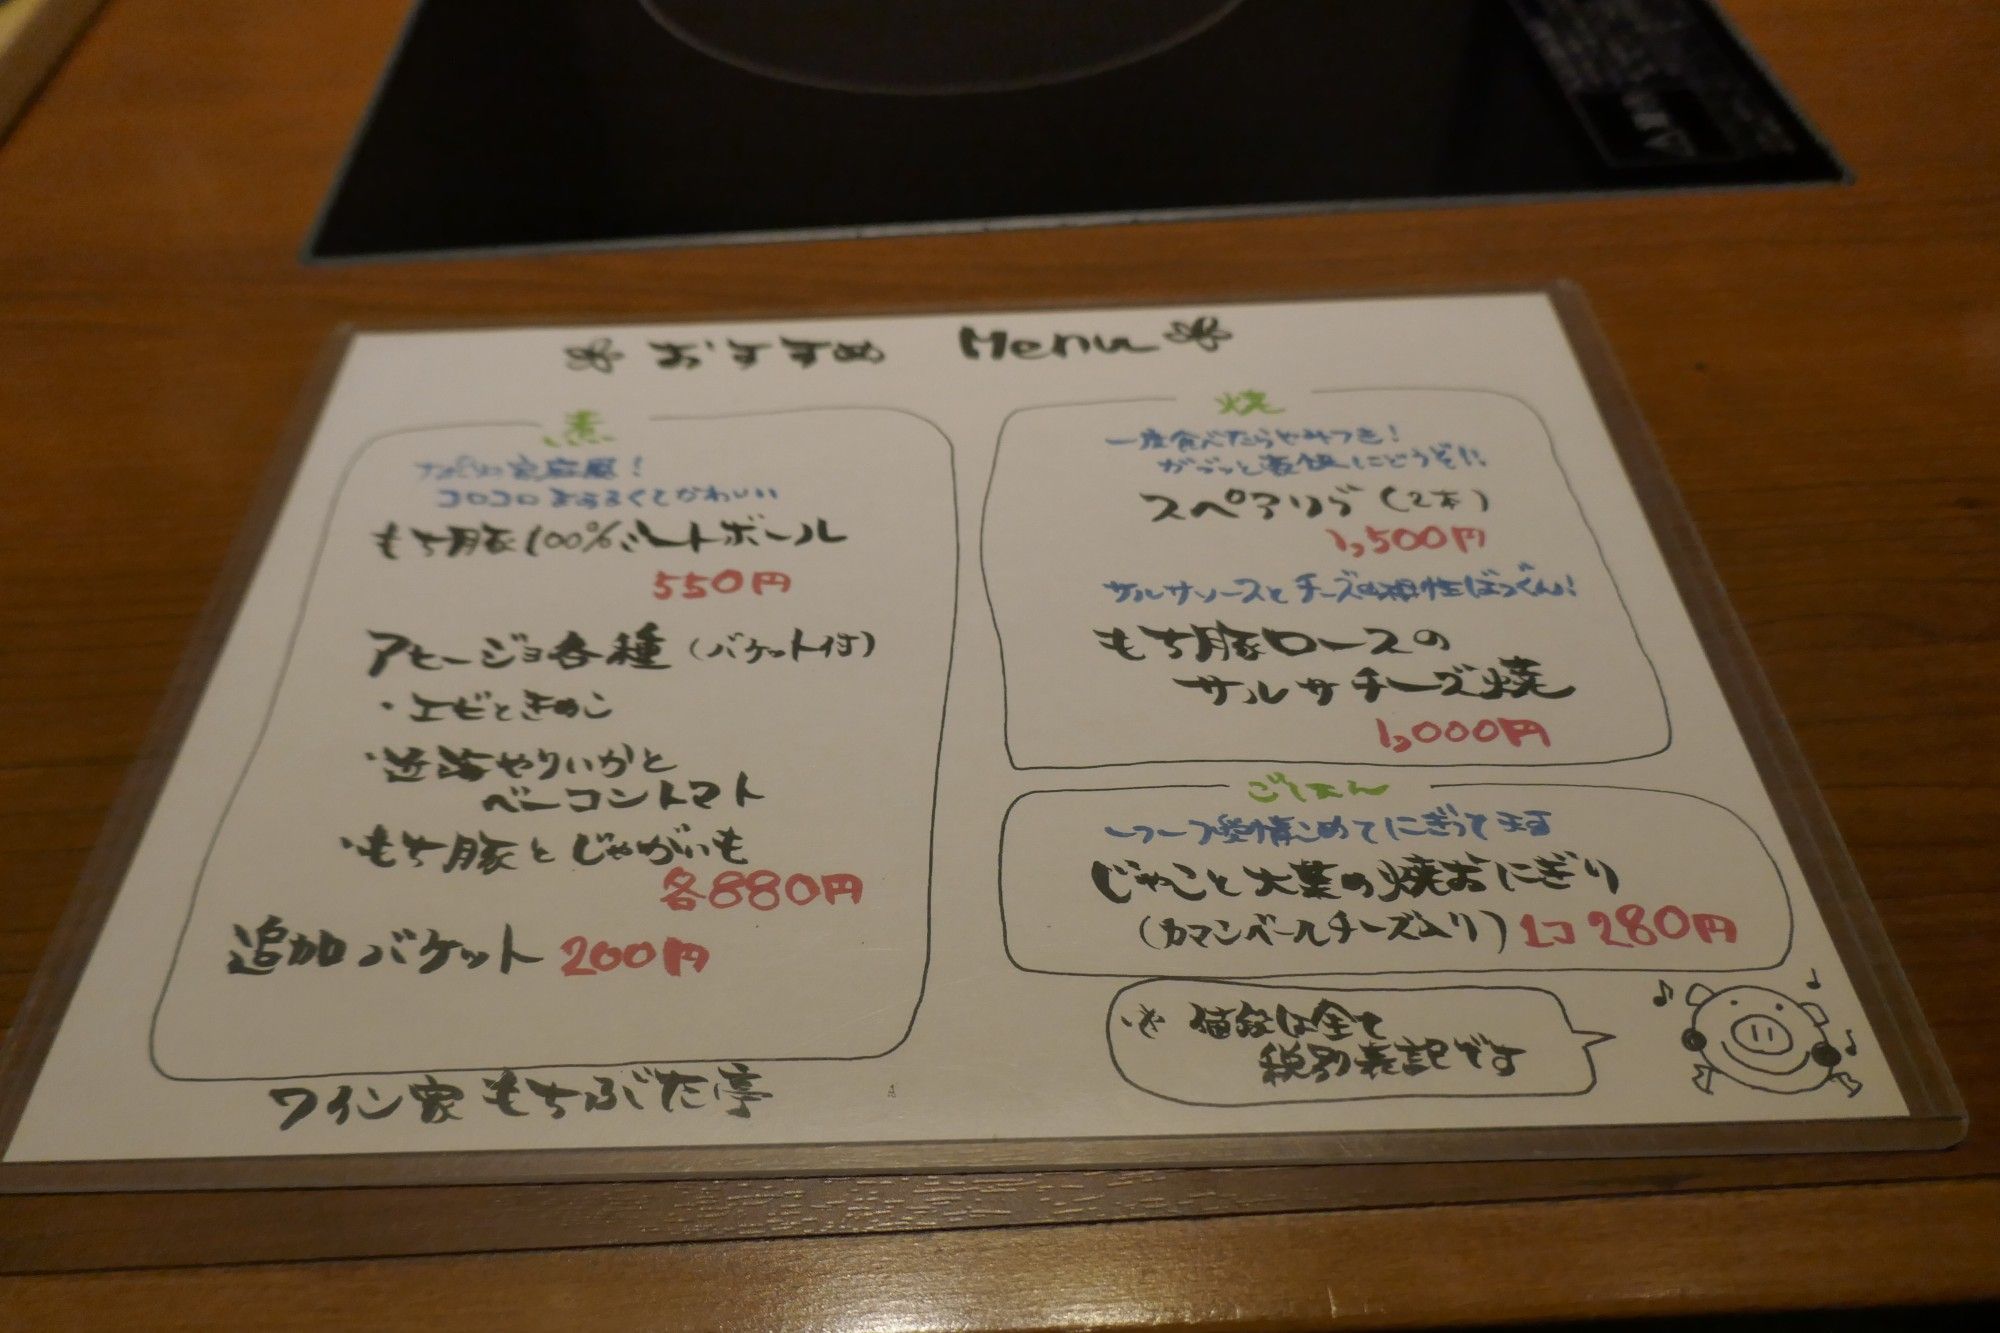 おすすめ Menu
煮
コロコロまぁるくてかわいい
もち豚100%ミートボール
550円
アヒージョ各種(バケット付)
・エビときのこ
・近海やりいかと
ベーコントマト
・もち豚とじゃがいも
各880円
追加バケット 200円
焼
一度食べたらやみつき!
がぶっと豪快にどうぞ!!
スペアリブ(2本)
1,500円
サルサソースとチーズの相性ばつぐん!
もち豚ロースの
サルサチーズ焼
1,000円
ごはん
愛情こめてにぎってます
じゃこと大葉の焼おにぎり
(カマンベールチーズ入り)1コ 280円
※ 値段は全て
税別表記です
ワイン家 もちぶた亭